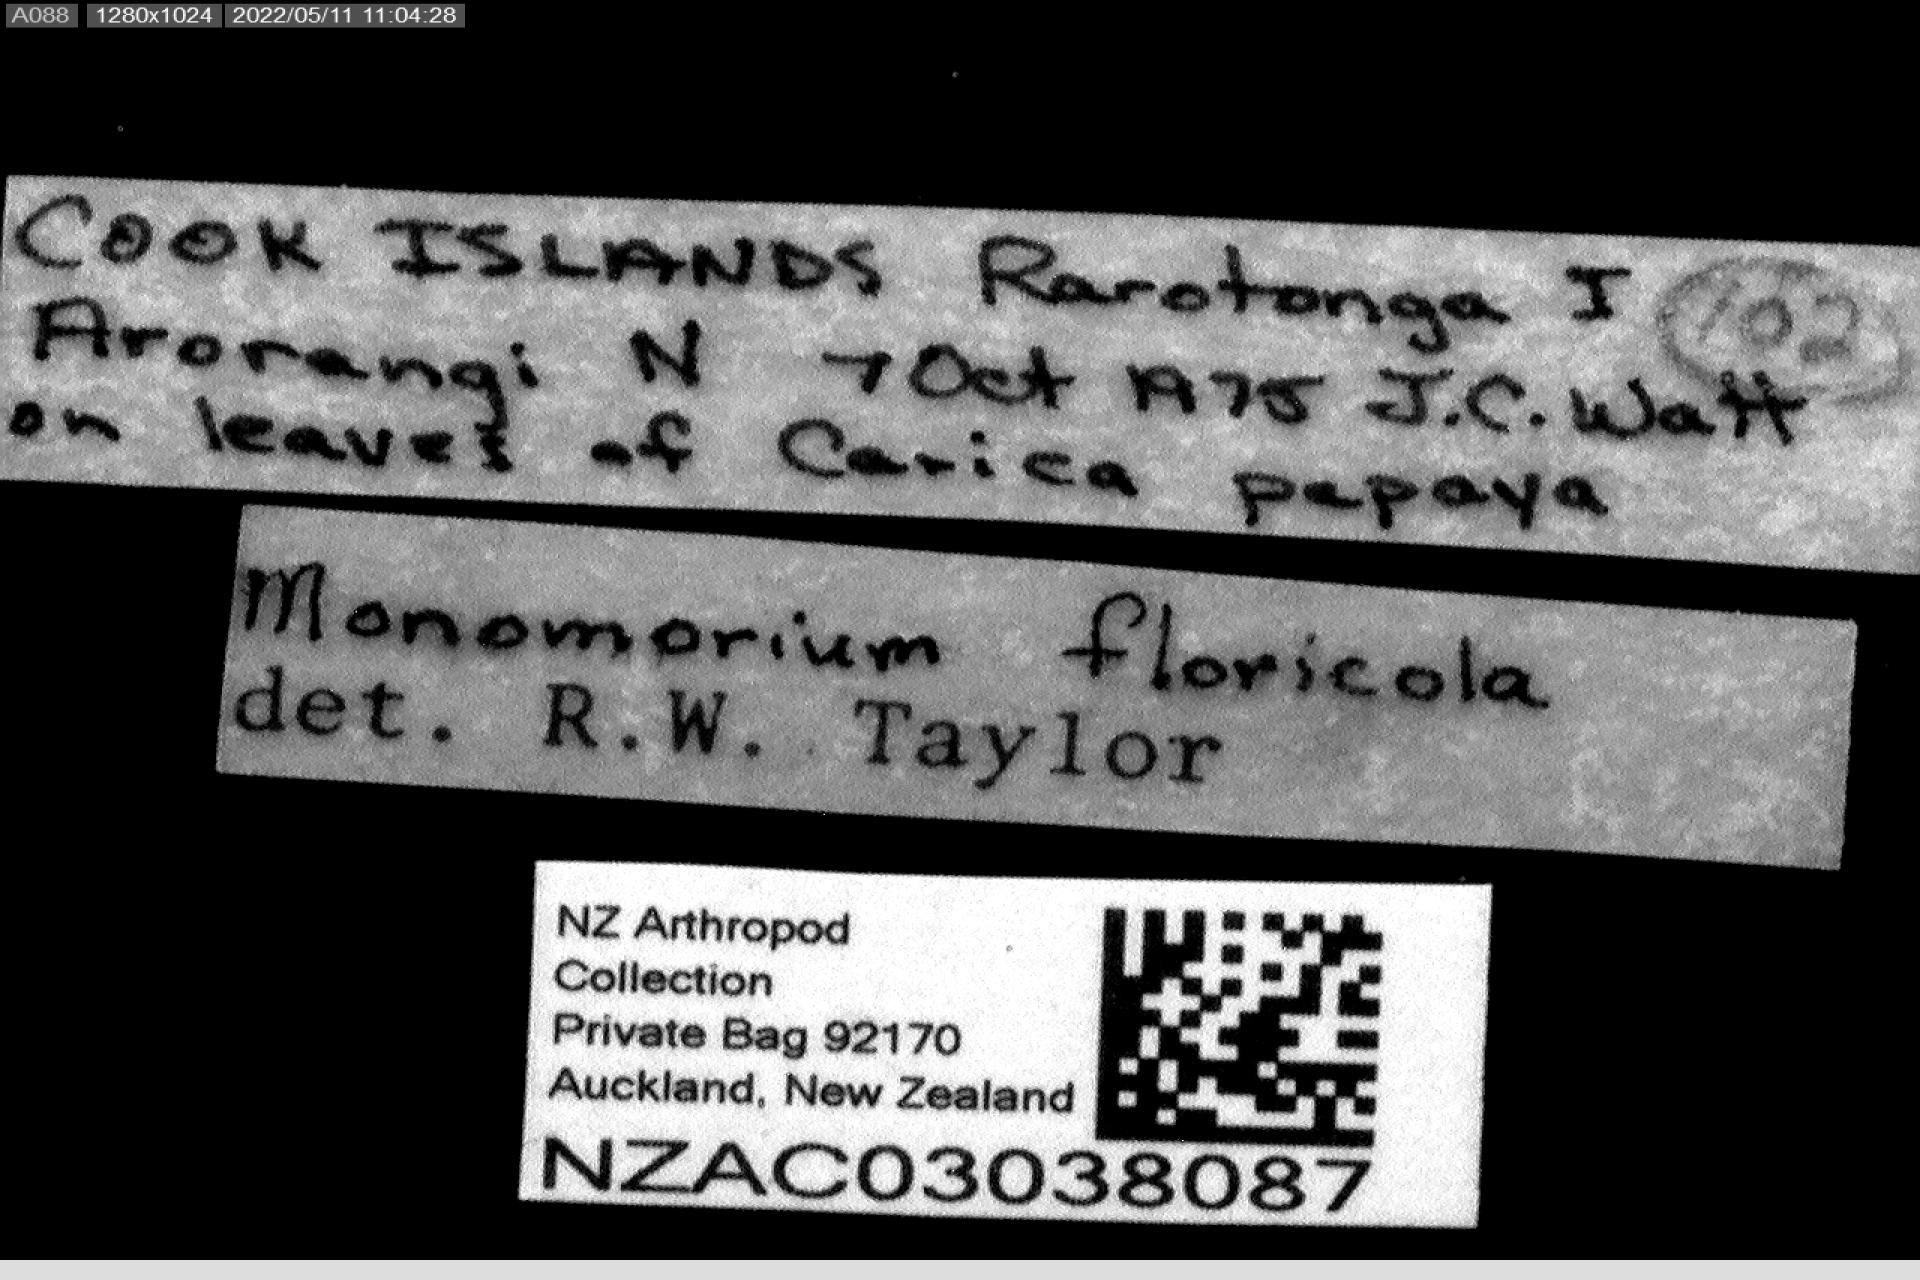 A088 1280x1024 2022/05/11 11:04:28
COOK ISLANDS Rarotonga I 102
Arorangi N 7 Oct 1975 J.C. Watt
on leaves of Carica papaya
Monomorium floricola
det. R.W. Taylor
NZ Arthropod
Collection
Private Bag 92170
Auckland, New Zealand
NZAC03038087